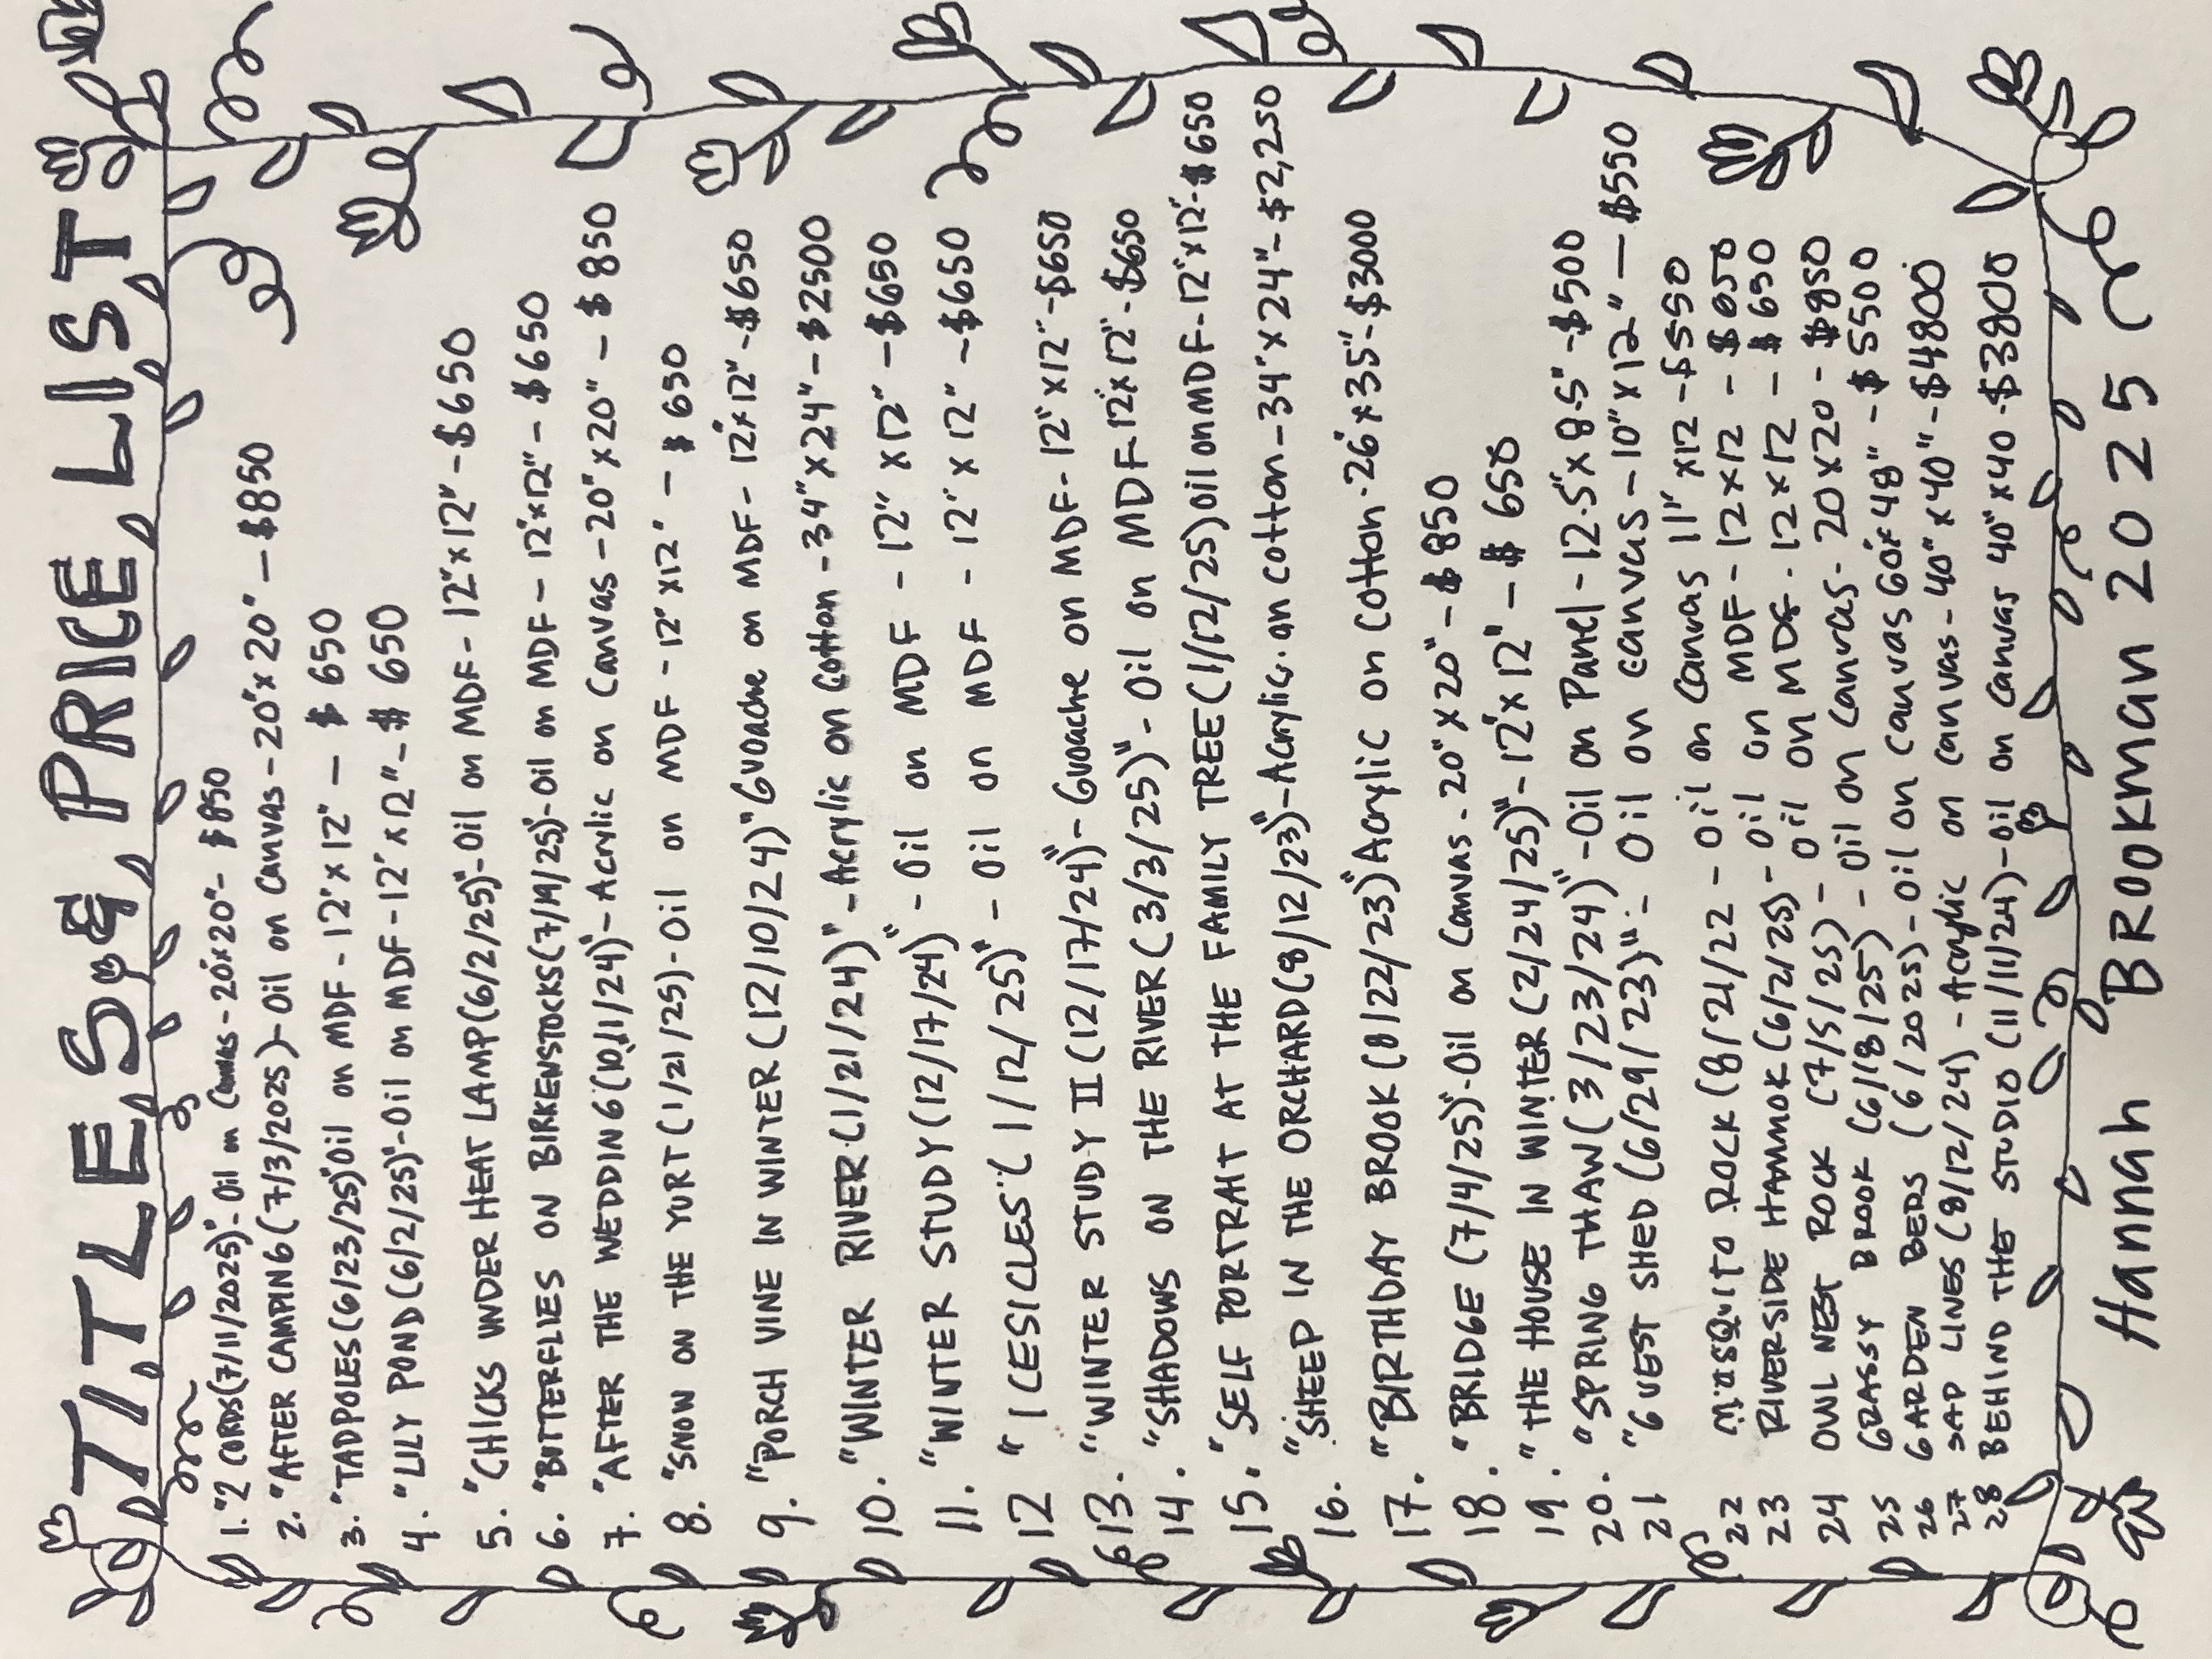 TITLES & PRICE LIST
1. "2 CORDS (7/11/2025)" - Oil on Canvas - 20"x20" - $850
2. "AFTER CAMPING (7/3/2025) - Oil on Canvas - 20"x20" - $850
3. "TADPOLES (6/23/25)" Oil on MDF - 12"x12" - $650
4. "LILY POND (6/2/25)" - Oil on MDF - 12"x12" - $650
5. "CHICKS UNDER HEAT LAMP (6/2/25)" - Oil on MDF - 12"x12" - $650
6. "BUTTERFLIES ON BIRKENSTOCKS (7/19/25)" - Oil on MDF - 12"x12" - $650
7. "AFTER THE WEDDING (10/1/24)" - Acrylic on Canvas - 20"x20" - $850
8. "SNOW ON THE YURT (1/21/25) - Oil on MDF - 12"x12" - $650
9. "PORCH VINE IN WINTER (12/10/24)" Guoache on MDF - 12"x12" - $650
10. "WINTER RIVER (1/21/24)" - Acrylic on Cotton - 34"x24" - $2500
11. "WINTER STUDY (12/17/24)" - Oil on MDF - 12"x12" - $650
12 "ICESICLES (1/12/25)" - Oil on MDF - 12"x12" - $650
13. "WINTER STUDY II (12/17/24)" - Guoache on MDF - 12"x12" - $650
14. "SHADOWS ON THE RIVER (3/3/25)" - Oil on MDF - 12"x12" - $650
15. "SELF PORTRAIT AT THE FAMILY TREE (1/12/25) Oil on MDF - 12"x12" - $650
16. "SHEEP IN THE ORCHARD (8/12/23)" - Acrylic on Cotton - 34"x24" - $2,250
17. "BIRTHDAY BROOK (8/22/23)" Acrylic on Cotton - 26"x35" - $3000
18. "BRIDGE (7/4/25)" - Oil on Canvas - 20"x20" - $850
19. "THE HOUSE IN WINTER (2/24/25)" - 12"x12" - $650
20. "SPRING THAW (3/23/24)" - Oil on Panel - 12.5"x8.5" - $500
21 "GUEST SHED (6/29/23)" - Oil on canvas - 10"x12" - $550
22 MOSQUITO ROCK (8/21/22 - Oil on Canvas 11"x12 - $550
23 RIVERSIDE HAMMOK (6/2/25) - Oil on MDF - 12x12 - $650
24 OWL NEST ROCK (7/5/25) - Oil on MDF. 12x12 - $650
25 GRASSY BROOK (6/18/25) - Oil on Canvas - 20x20 - $850
26 GARDEN BEDS (6/2025) - Oil on Canvas 60"x48" - $5500
27 SAP LINES (8/12/24) - Acrylic on Canvas - 40"x40" - $4800
28 BEHIND THE STUDIO (11/11/24) - Oil on Canvas 40"x40 - $3800
Hannah Brookman 2025